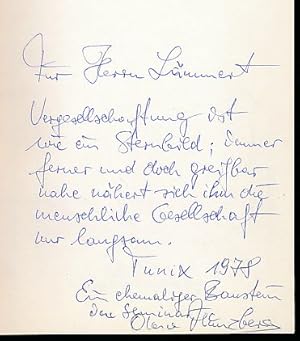 Für Herrn Lämmert
Vergesellschaftung ist
wie ein Sternbild; immer
ferner und doch greifbar
nahe nähert sich ihm die
menschliche Gesellschaft
nur langsam.
Tunix 1978
Ein ehemaliger Baustein
des Seminars